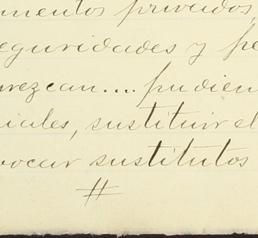 umentos privados,
eguridades y pe
arezcan.... pudien
iales, sustituir el
vocar sustitutos
#